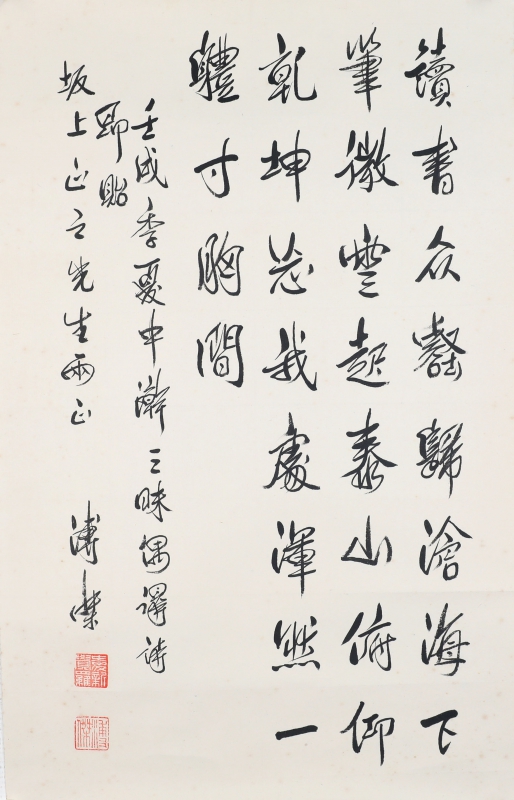 讀書众壑歸滄海下
筆微雲起泰山俯仰
乾坤忘我處渾然一
體寸胸間
壬戌季夏中澣三昧偶詩
即貽
坂上正之先生兩正
溥傑
愛新覺羅
溥傑